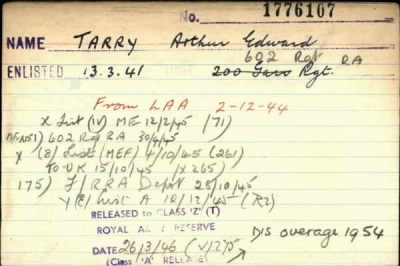 No. 1776107
NAME TARRY Arthur Edward
602 Rgt RA
ENLISTED 13.3.41 200 Rgt.
From LAA 2-12-44
X List (IV) ME 12/2/45 (71)
602 Rgt RA 30/4/45
X (8) List (MEF) 4/10/45 (261)
To UK 15/10/45 (X265)
175) RRA Depot 25/10/45
List A 10/12/45
RELEASED to CLASS 'Z' (T)
ROYAL RESERVE
DATE 26/3/46 D/S overage 1954
(Class 'A' RELEASE)